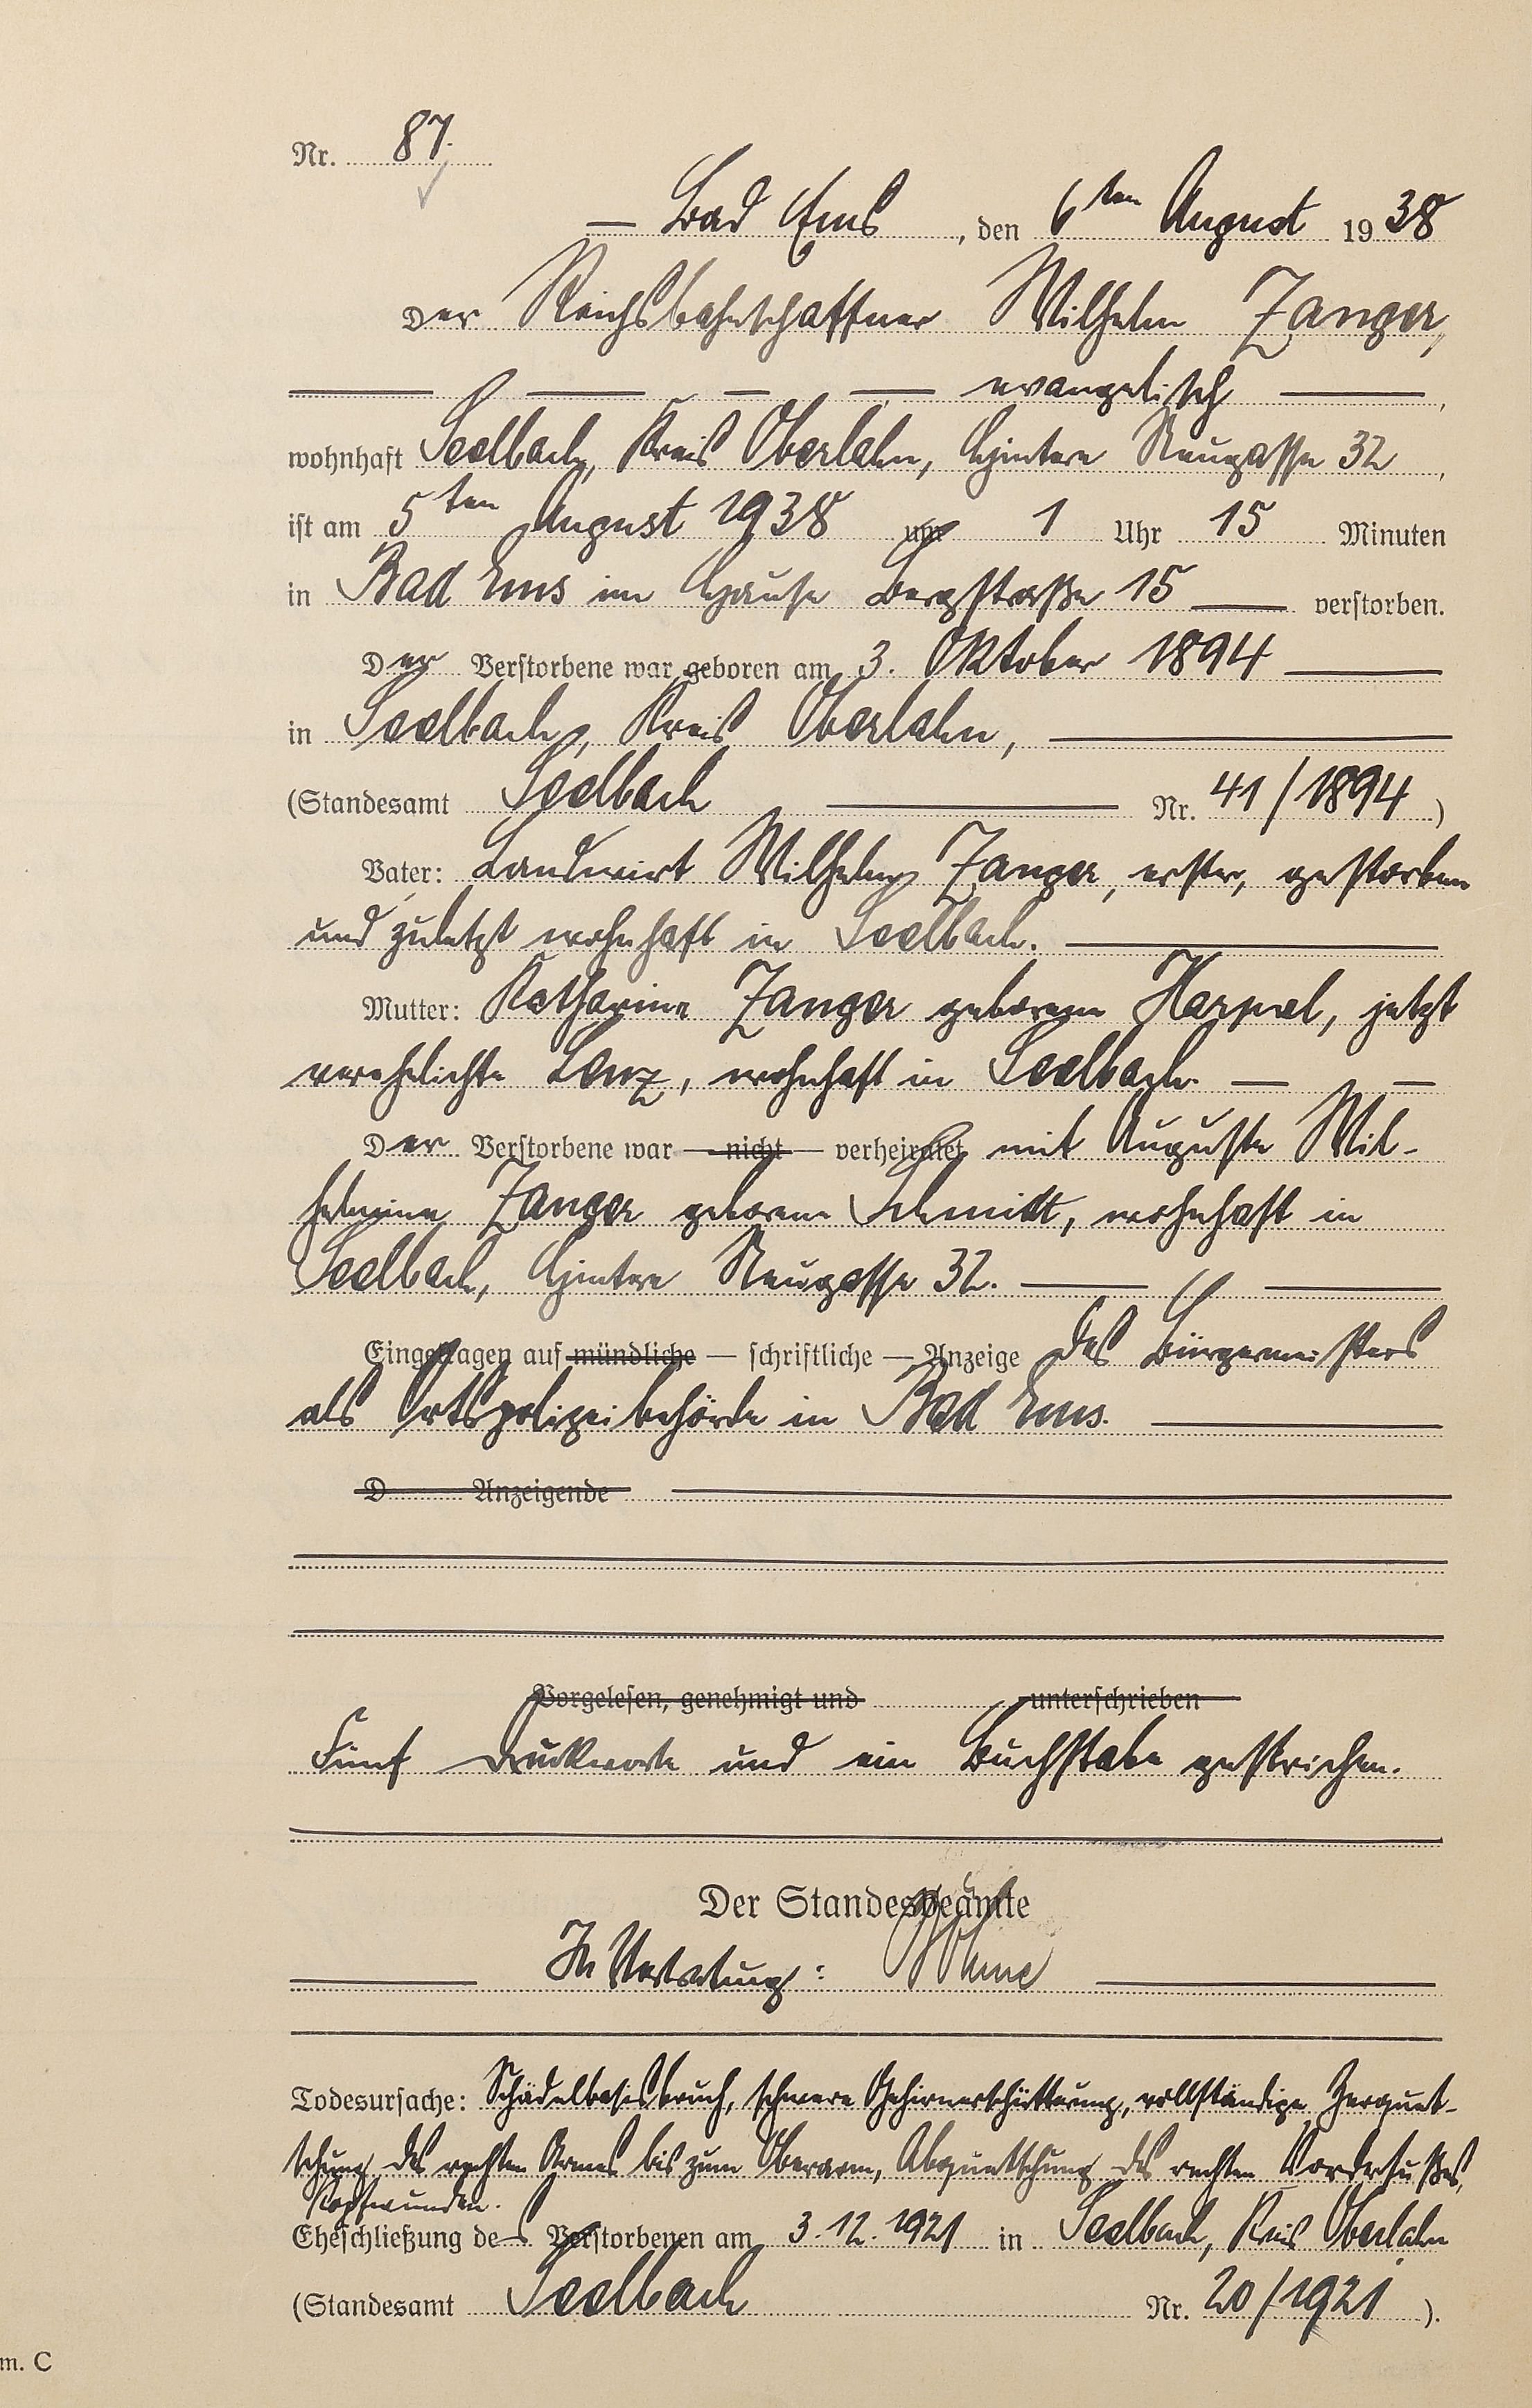 Nr. 87.
— Bad Ems, den 6ten August 1938
Der Reichsbahnschaffner Wilhelm Zanger,
— — — — evangelisch —,
wohnhaft Seelbach, Kreis Oberlahn, Hintere Neugasse 32,
ist am 5ten August 1938 um 1 Uhr 15 Minuten
in Bad Ems im Hause Bergstraße 15 — verstorben.
Der Verstorbene war geboren am 3. Oktober 1894 —
in Seelbach, Kreis Oberlahn, —
(Standesamt Seelbach — Nr. 41/1894)
Vater: Landwirt Wilhelm Zanger, erster, gestorben
und zuletzt wohnhaft in Seelbach. —
Mutter: Katharine Zanger geborene Harpel, jetzt
verehelichte Lenz, wohnhaft in Seelbach. — —
Der Verstorbene war — nicht — verheiratet mit Auguste Wil-
helmine Zanger geborene Schmidt, wohnhaft in
Seelbach, Hintere Neugasse 32. — —
Eingetragen auf mündliche — schriftliche — Anzeige des Bürgermeisters
als Ortspolizeibehörde in Bad Ems. —
D Anzeigende —
Vorgelesen, genehmigt und unterschrieben
Fünf Druckworte und ein Buchstabe gestrichen.
Der Standesbeamte
In Vertretung:
Todesursache: Schädelbasisbruch, schwere Gehirnerschütterung, vollständige Zerquet-
schung des rechten Armes bis zum Oberarm, Abquetschung des rechten Vorderfußes,
Kopfwunden.
Eheschließung des Verstorbenen am 3.12.1921 in Seelbach, Kreis Oberlahn
(Standesamt Seelbach Nr. 20/1921).
m. C